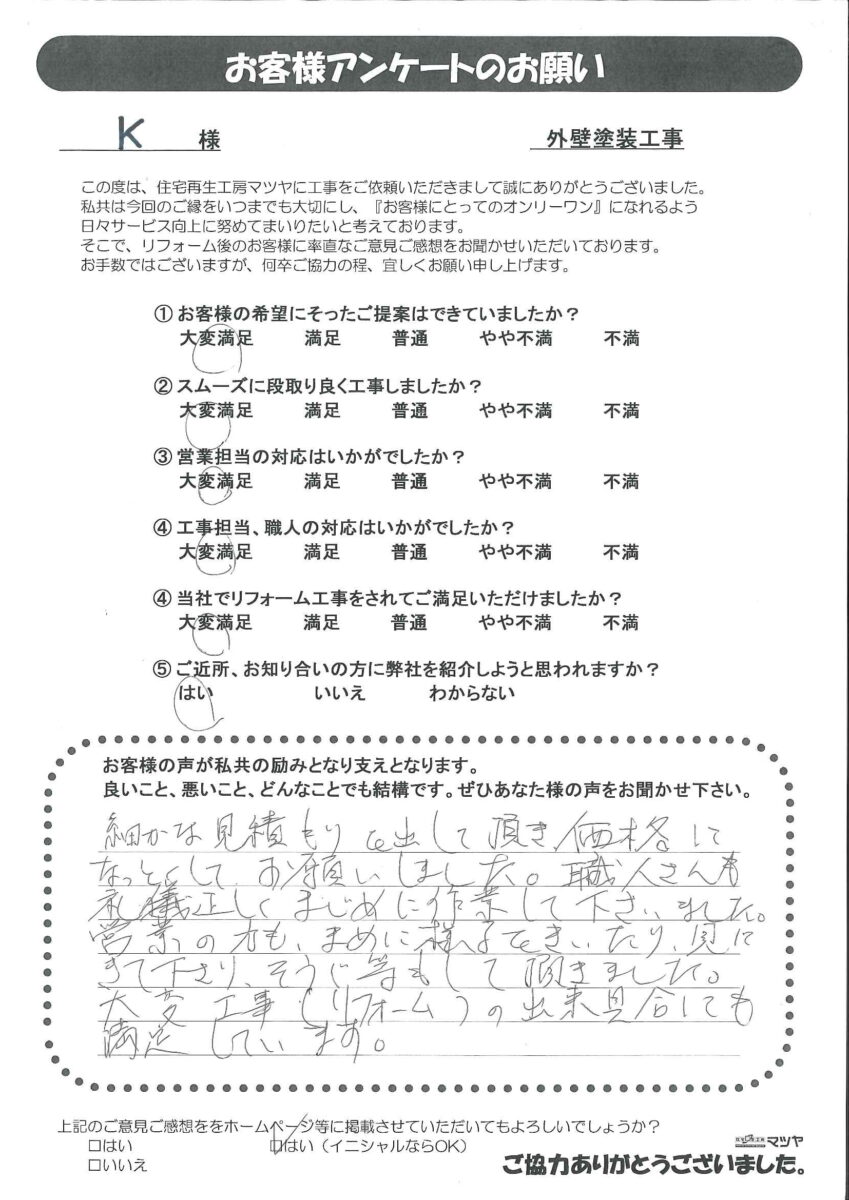 お客様アンケートのお願い
K 様 外壁塗装工事
この度は、住宅再生工房マツヤに工事をご依頼いただきまして誠にありがとうございました。
私共は今回のご縁をいつまでも大切にし、『お客様にとってのオンリーワン』になれるよう
日々サービス向上に努めてまいりたいと考えております。
そこで、リフォーム後のお客様に率直なご意見ご感想をお聞かせいただいております。
お手数ではございますが、何卒ご協力の程、宜しくお願い申し上げます。
① お客様の希望にそったご提案はできていましたか？
大変満足 満足 普通 やや不満 不満
② スムーズに段取り良く工事しましたか？
大変満足 満足 普通 やや不満 不満
③ 営業担当の対応はいかがでしたか？
大変満足 満足 普通 やや不満 不満
④ 工事担当、職人の対応はいかがでしたか？
大変満足 満足 普通 やや不満 不満
④ 当社でリフォーム工事をされてご満足いただけましたか？
大変満足 満足 普通 やや不満 不満
⑤ ご近所、お知り合いの方に弊社を紹介しようと思われますか？
はい いいえ わからない
お客様の声が私共の励みとなり支えとなります。
良いこと、悪いこと、どんなことでも結構です。ぜひあなた様の声をお聞かせ下さい。
細かな見積もりを出して頂き、価格に
なっとくして、お願いしました。職人さんも
礼儀正しくまじめに作業して下さいました。
営業の方も、まめに様子をきいたり、見に
きて下さり、そうじ等もして頂きました。
大変工事（リフォーム）の出来具合にも
満足しています。
上記のご意見ご感想ををホームページ等に掲載させていただいてもよろしいでしょうか？
□はい □はい（イニシャルならOK）
□いいえ
マツヤ
ご協力ありがとうございました。